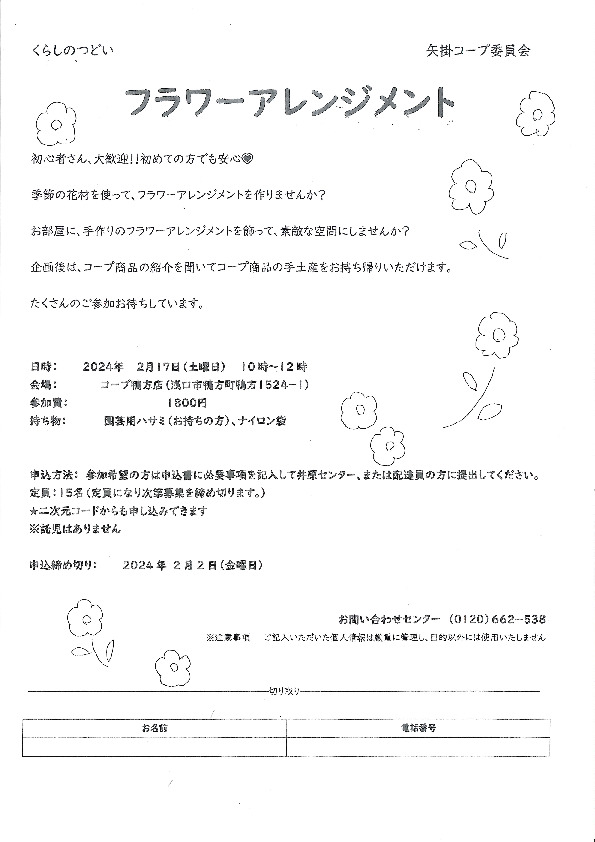 くらしのつどい 矢掛コープ委員会
フラワーアレンジメント
初心者さん、大歓迎!!初めての方でも安心♥
季節の花材を使って、フラワーアレンジメントを作りませんか?
お部屋に、手作りのフラワーアレンジメントを飾って、素敵な空間にしませんか?
企画後は、コープ商品の紹介を聞いてコープ商品の手土産をお持ち帰りいただけます。
たくさんのご参加お待ちしています。
日時: 2024年 2月17日(土曜日) 10時~12時
会場: コープ鴨方店(浅口市鴨方町鴨方1524-1)
参加費: 1800円
持ち物: 園芸用ハサミ(お持ちの方)、ナイロン袋
申込方法: 参加希望の方は申込書に必要事項を記入して井原センター、または配達員の方に提出してください。
定員:15名(定員になり次第募集を締め切ります。)
★二次元コードからも申し込みできます
※託児はありません
申込締め切り: 2024年 2月2日(金曜日)
お問い合わせセンター (0120)662-538
※注意事項 ご記入いただいた個人情報は厳重に管理し、目的以外には使用いたしません
切り取り
お名前 電話番号